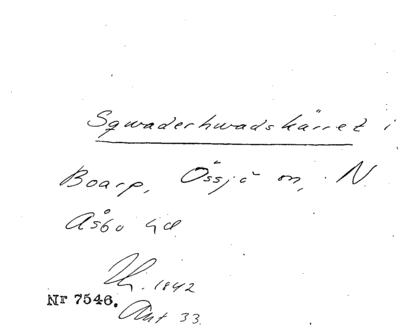 Sqwaderhwadskärret i
Boarp, Össjö sn, N.
Åsbo hd
1842
Nr 7546. Akt 33.